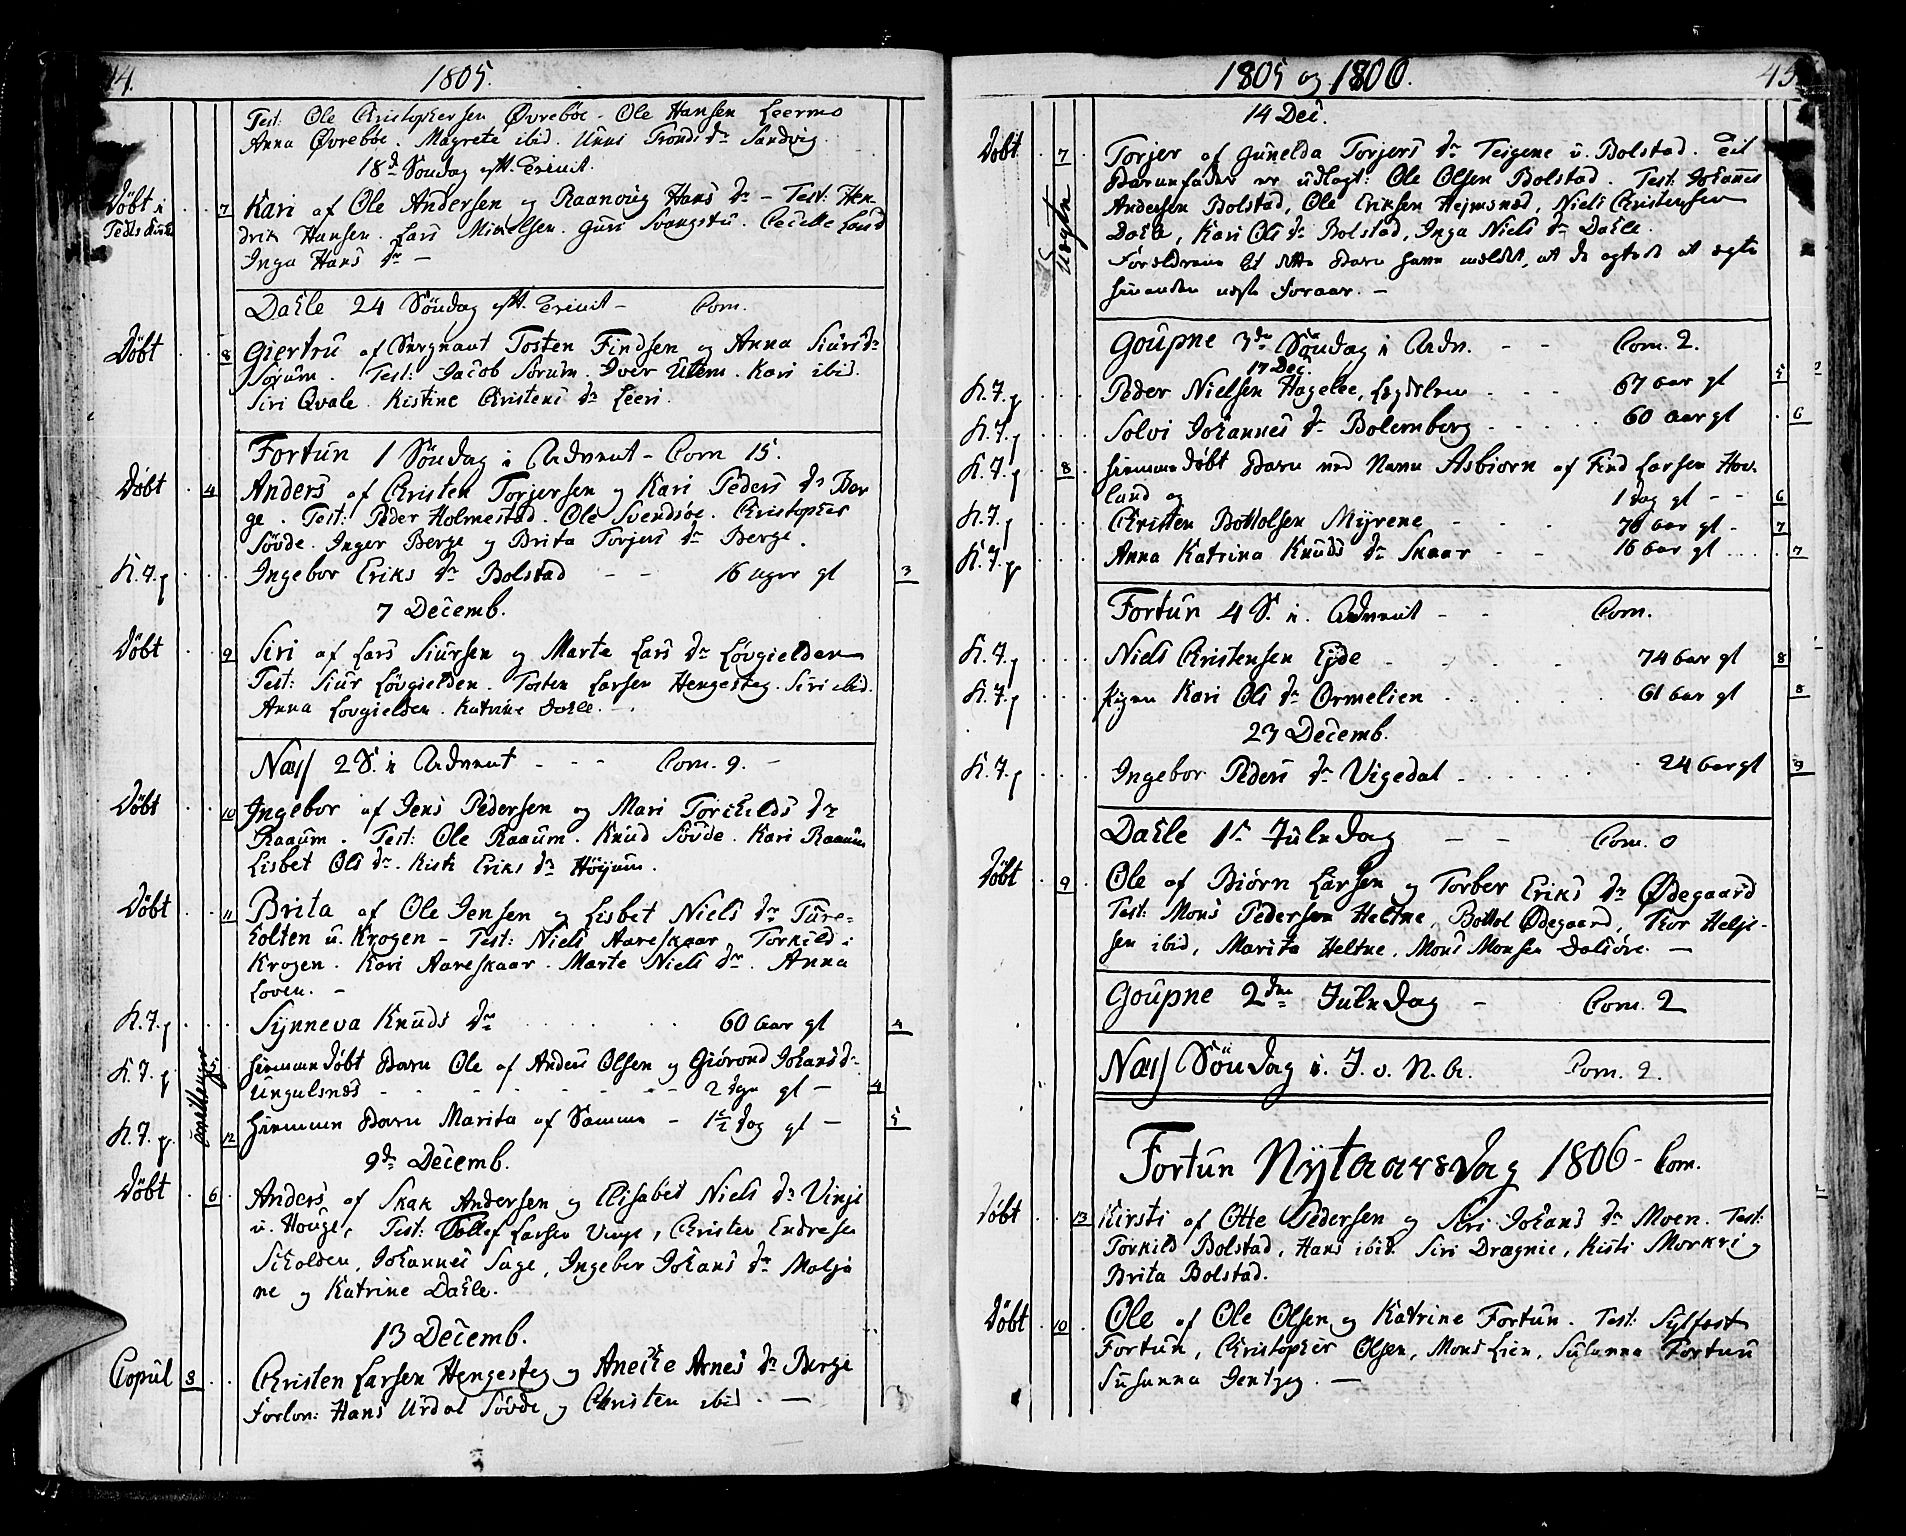 44.
1805.
Test: Ole Christophersen Øvreboe. Ole Hansen Leermo
Anna Øvreboe. Magrete ibid. Unni Tronds dr Sandvig.
18d Söndag eft. Trinit.
Döbt i 7 Kari af Ole Andersen og Raanoug Hans dr – Test: Hen
drik Hansen. Lars Mikelsen. Guri Svangstu. Cecille
Inga Hans dr –
Dahle 24 Söndag eft. Trinit – Com.
Döbt 8 Giertru af Sergeant Tosten Findsen og Anna Siurs dr
Sørum. Test: Jacob Sorum. Iver Utem. Kari ibid.
Siri Qvale. Kistine Christens dr Leeri.
Fortun 1 Söndag i Advent – Com 15.
Döbt 4 Anders af Christen Torjersen og Kari Peders dr Ber
ge. Test: Peder Holmestad. Ole Svendsøe. Christopher
Søvde. Inger Berge og Brita Torjers dr Berge.
K. J. p Ingebor Eriks dr Bolstad – – 16 uger gl 3
7 Decemb.
Döbt 9 Siri af Lars Siursen og Marte Lars dr Løvgielden
Test: Siur Løvgielden. Tosten Larsen Hengesteg. Siri ibid.
Anna Løvgielden. Katrine Dahle. –
Næss 2 S. i Advent – – – Com. 9. –
Döbt 10 Ingebor af Jens Pedersen og Mari Torchilds dr
Raaum. Test: Ole Raaum. Knud Søvde. Kari Raaum
Lisbet Ols dr. Kisti Eriks dr Høyum.
Döbt 11 Brita af Ole Jensen og Lisbet Niels dr Ture-
holten u. Krogen – Test: Niels Aareskaar. Torkild i
Krogen. Kari Aareskaar. Marte Niels dr. Anna
Loven. –
K. J. p Synneva Knuds dr 60 aar gl 4
K. J. p 5. hiemmedöbt Barn Ole af Anders Olsen og Giörond Johans dr
Ungulsnes – – – – – – 2 dage gl – 4
K. J. p. 12 hiemme Barn Marita af Samme – 1½ dag gl – 5
9de Decemb.
Döbt 6 Anders af Skak Andersen og Elisabet Niels dr Vinje
u. Houge, Test: Tollef Larsen Vinge, Christen Endresen
Scholden, Johannes Sage, Ingeber Johans dr Molja
ne og Katrine Dahle.
13 Decemb.
Copul 3 Christen Larsen Hengesteg og Aneche Arnes dr Berge
Forlov: Hans Urdal Søvde og Christen ibid. –
1805 og 1806.
45
14 Dec.
Döbt 7 Torjer af Gunelda Torjers dr Teigene u. Bolstad. Til
Barnefader er udlagt: Ole Olsen Bolstad. Test: Johannes
Uægte
Andersen Bolstad, Ole Eriksen Hejmsnød, Niels Christensen
Dahle, Kari Ols dr Bolstad, Inga Niels dr Dahle.
Foreldrene til dette Barn have meldet, at de agtede at ægte
hinanden næste Foraar. –
Goupne 3de Söndag i Adv. – – Com. 2.
17 Dec.
K. J. p Peder Nielsen Hageloe, Lægdslem – – – 67 aar gl 5
K. J. p Solvi Johannes dr Bolemberg 60 aar gl 6
K. J. p 8 hiemmedöbt Barn ved Navn Asbiørn af Find Larsen Hov-
land og 1 dag gl – – 6
K. J. p Christen Bottolsen Myrene – – – 76 aar gl – 7
K. J. p Anna Katrina Knuds dr Skaar – – 16 aar gl 7
Fortun 4 S. i. Advent – – Com.
K. J. p Niels Christensen Ejde 74 aar gl 8
K. J. p pigen Kari Ols dr Ormelien 61 aar gl 8
23 Decemb.
K. J. p Ingebor Peders dr Vigedal 24 aar gl 9
Dahle 1st Juledag – – Com. 0
Döbt 9 Ole af Biörn Larsen og Torber Eriks dr Ødegaard
Test: Mons Pedersen Heltne, Bottol Ødegaard, Thor Helje-
sen ibid, Marita Heltne. Mons Monsen Dalsöre. –
Goupne 2den Juledag – Com. 2
Næss Söndag i. J. o. N. A. Com. 2.
Fortun Nytaarsdag 1806 – Com.
Döbt 13 Kirsti af Otte Pedersen og Siri Johans dr Moen. Test:
Torkild Bolstad, Hans ibid. Siri Drægnie, Kisti Morkri og
Brita Bolstad.
Döbt 10 Ole af Ole Olsen og Katrine Fortun. Test: Sylfest
Fortun, Christopher Olsen, Mons Lien, Susanna Fortun
Susanna Jentzeg. –